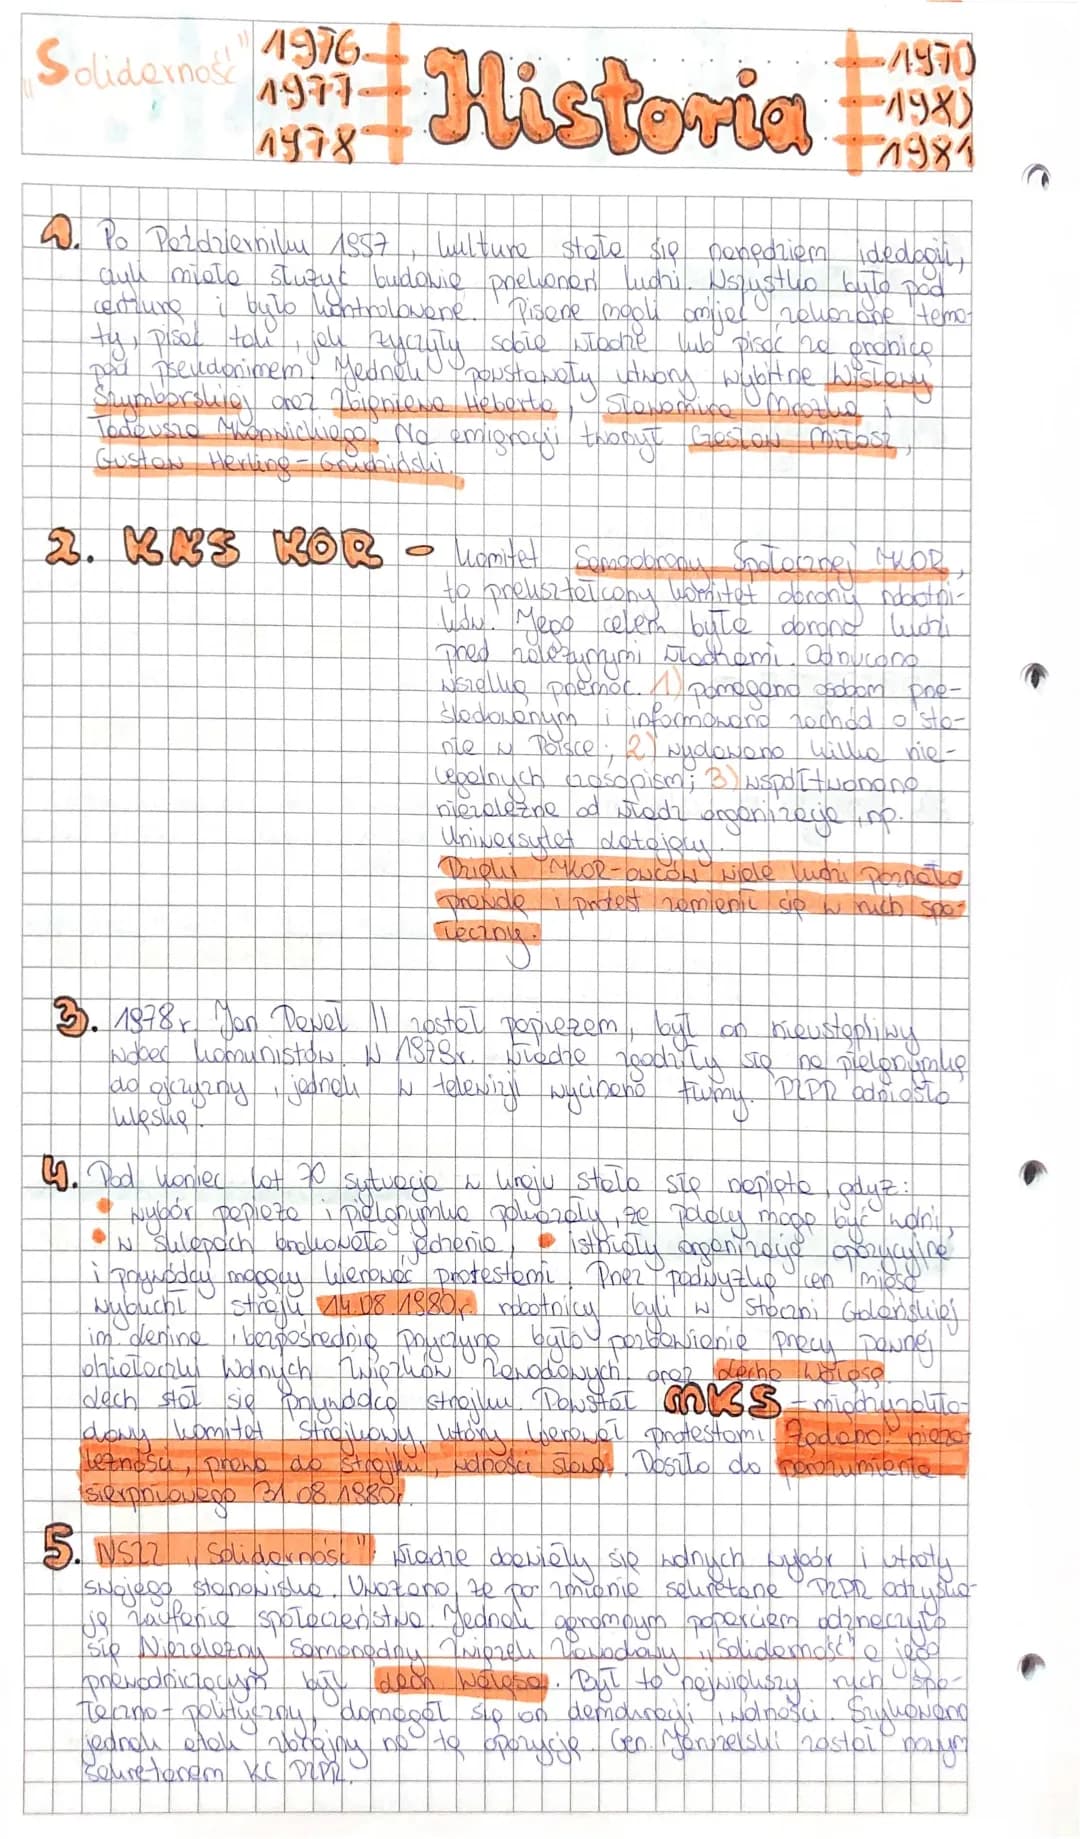 „Solidarność"
1976
1977
1978
Historia
1970
1980
1981
1. Po Październiku 1957, kultura stała się narzędziem ideologii,
czyli miała służyć budowie przekonań ludzi. Wszystko było pod
cenzurą i było kontrolowane. Pisarze mogli omijać zakazane tema-
ty, pisać tak, jak życzyły sobie władze lub pisać za granicą
pod pseudonimem. Jednak powstawały utwory wybitne Wisławy
Szymborskiej oraz Zbigniewa Heberta, Sławomira Mrożka i
Tadeusza Konwickiego. Na emigracji tworzył Czesław Miłosz,
Gustaw Herling-Grudziński.
2. KNS KOR - komitet Samoobrony Społecznej "KOR,
to przekształcony komitet obrony robotni-
ków. Jego celem była obrona ludzi
przed zależnymi władzami. Odrzucano
wszelką przemoc. 1) pomagano osobom prze-
śladowanym i informowano zachód o sta-
nie w Polsce; 2) wydawano kilka nie-
legalnych czasopism; 3) współtworzono
niezależne od władz organizacje, np.
Uniwersytet Latający.
Dzięki "KOR-owców wiele ludzi poznało
prawdę i protest zamienić się w ruch spo-
łeczny.
3. 1978r. Jan Paweł II został papieżem, był on nieustępliwy
wobec komunistów. W 1979r. władze zgodziły się na pielgrzymkę
do ojczyzny, jednak w telewizji wycinano tłumy. PZPR odniosło
klęskę.
4. Pod koniec lat 70 sytuacja w kraju stała się napięta, gdyż:
• wybór papieża i pielgrzymka pokazały, że polacy mogą być wolni,
• w sklepach brakowało jedzenia, • istniały organizacje opozycyjne
i przywódcy mogący kierować protestami. Przez podwyżkę cen mięsa
wybuchł strajk 14.08.1980r. robotnicy byli w Stoczni Gdańskiej
im. Lenina, bezpośrednią przyczyną było pozbawienie pracy pewnej
działaczki Wolnych Związków Zawodowych oraz Lecha Wałęsę.
Lech stał się przywódcą strajku. Powstał MKS - międzyzakła-
dowy komitet Strajkowy, który kierował protestami. Żądano: nieza-
leżności, prawa do strajku, wolności słowa. Doszło do porozumienia
sierpniowego 31.08.1980r.
5. NSZZ „Solidarność" Władze obawiały się wolnych wybór i utraty
swojego stanowiska. Uważano, że po zmianie sekretarza PZPR odzyska-
ją zaufanie społeczeństwa. Jednak ogromnym poparciem odznaczył
się Niezależny Samorządny Związek Zawodowy „Solidarność" a jego
przewodniczącym był Lech Wałęsa. Był to największy ruch spo-
łeczno-polityczny, domagał się on demokracji, wolności. Szykowano
jednak atak zbrojny na tą opozycję. Gen. Jaruzelski został nowym
sekretarzem KC PZPR.